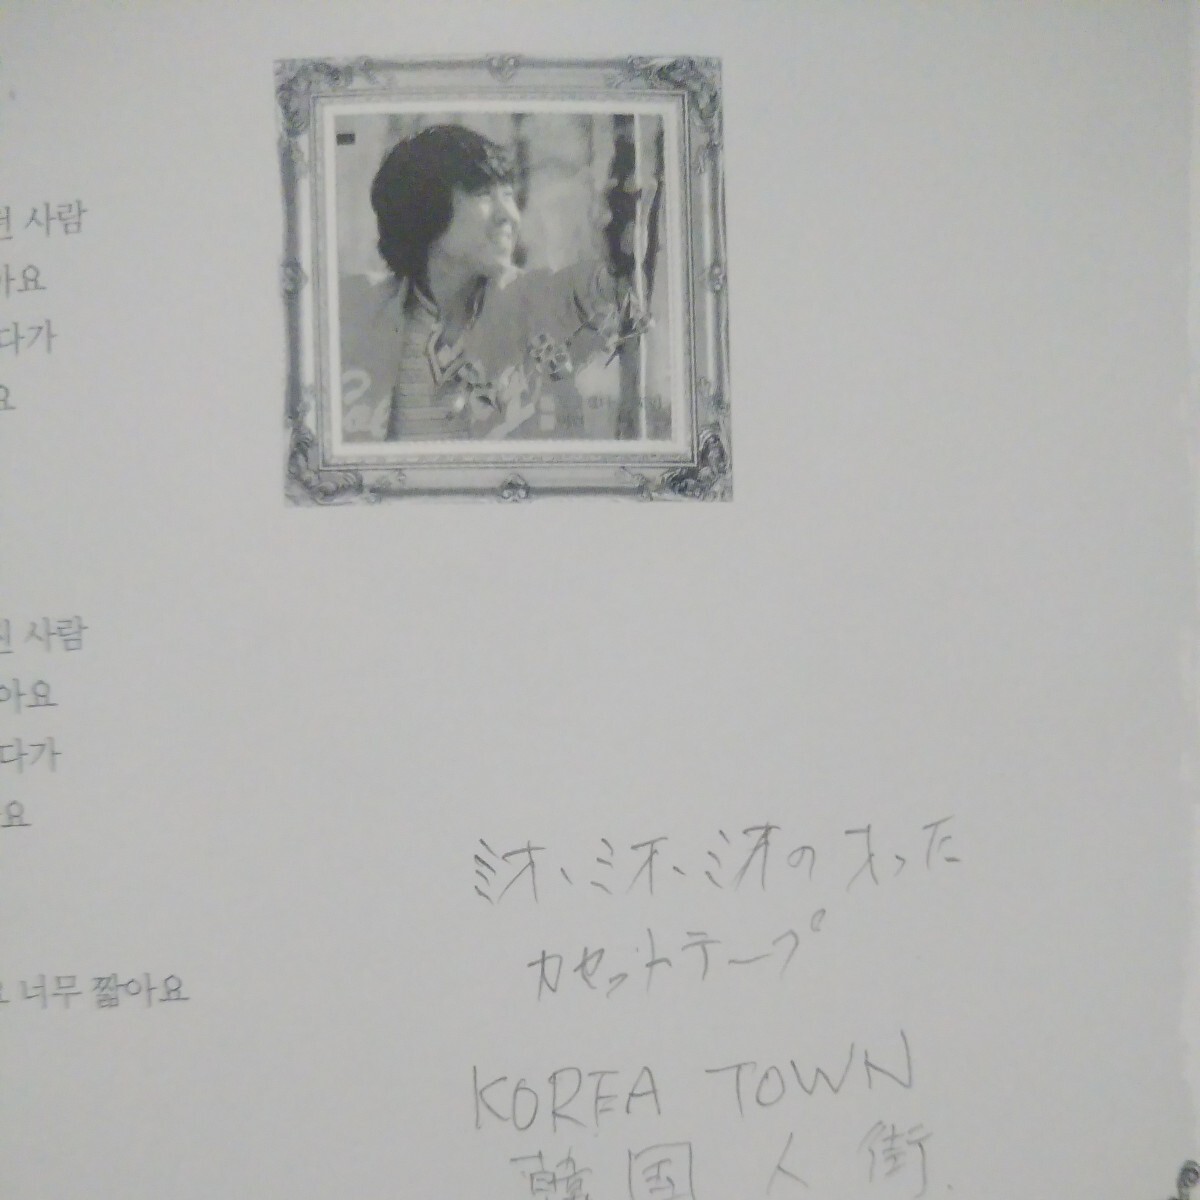 사람
아요
다가
요
사람
아요
다가
요
너무 짧아요
ミオ、ミオ、ミオのオった
カセットテープ
KOREA TOWN
韓国人街.